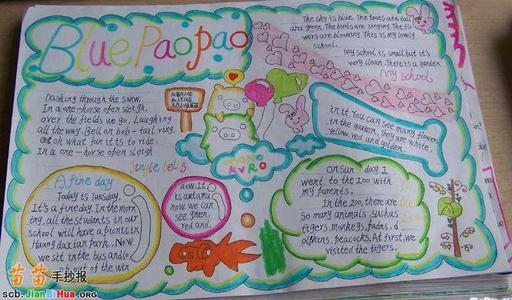 Blue Paopao
The sky is blue. The trees are tall
and green. The birds are singing. The flo
wers are blooming. This is my lovely
school.
My school is small but it's
very clean. There is a garden
My school
in it. You can see many flower
in the garden, they are white,
Yellow red and golden.
Dashing through the snow,
In a one-horse open sleigh,
over the fields we go, Laughing
all the way. Bell on bob-tail ring,
oh what fun it is to ride
In a one-horse open sleigh
Jingle bells
MONO
KURO
A fine day
Today is Tuesday,
It's a fine day. In the mor
ing, all the students in our
school will have a picnic in
Huang daxian Park. Now
we sit in the bus and
of the win
dow. It
is autumn
now. we can
see green,
red and
On Sunday I
went to the zoo with
my parents.
In the zoo, there are
So many animals, such as
tigers, monkeys, pandas, d
olphins, peacocks. At first, we
visited the tigers.
苗苗手抄报
scb.JianBiHua.ORG